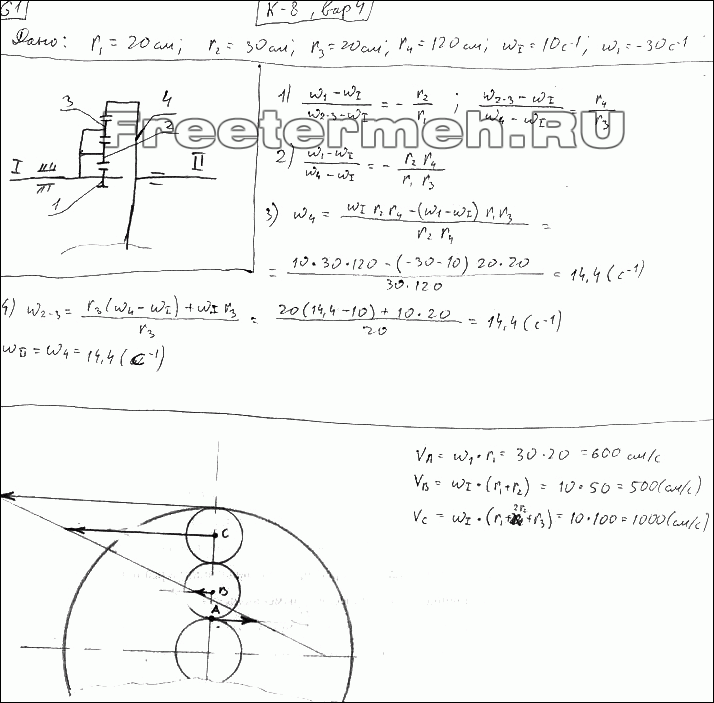 61 К-8, вар 4
Дано: r₁ = 20 см; r₂ = 30 см; r₃ = 20 см; r₄ = 120 см; ω_I = 10 с⁻¹; ω₁ = -30 с⁻¹
3 4
2
I II
1
1) (ω₁ - ω_I)/(ω₂₋₃ - ω_I) = - r₂/r₁ ; (ω₂₋₃ - ω_I)/(ω₄ - ω_I) = r₄/r₃
Freetermeh.RU
2) (ω₁ - ω_I)/(ω₄ - ω_I) = - (r₂ r₄)/(r₁ r₃)
3) ω₄ = (ω_I r₂ r₄ - (ω₁ - ω_I) r₁ r₃)/(r₂ r₄) =
= (10·30·120 - (-30-10) 20·20)/(30·120) = 14,4 (с⁻¹)
4) ω₂₋₃ = (r₃(ω₄ - ω_I) + ω_I r₃)/r₃ = (20(14,4-10) + 10·20)/20 = 14,4 (с⁻¹)
ω_II = ω₄ = 14,4 (с⁻¹)
V_A = ω₁·r₁ = 30·20 = 600 см/с
V_B = ω_I·(r₁+r₂) = 10·50 = 500 (см/с)
V_C = ω_I·(r₁+2r₂+r₃) = 10·100 = 1000 (см/с)
C
B
A